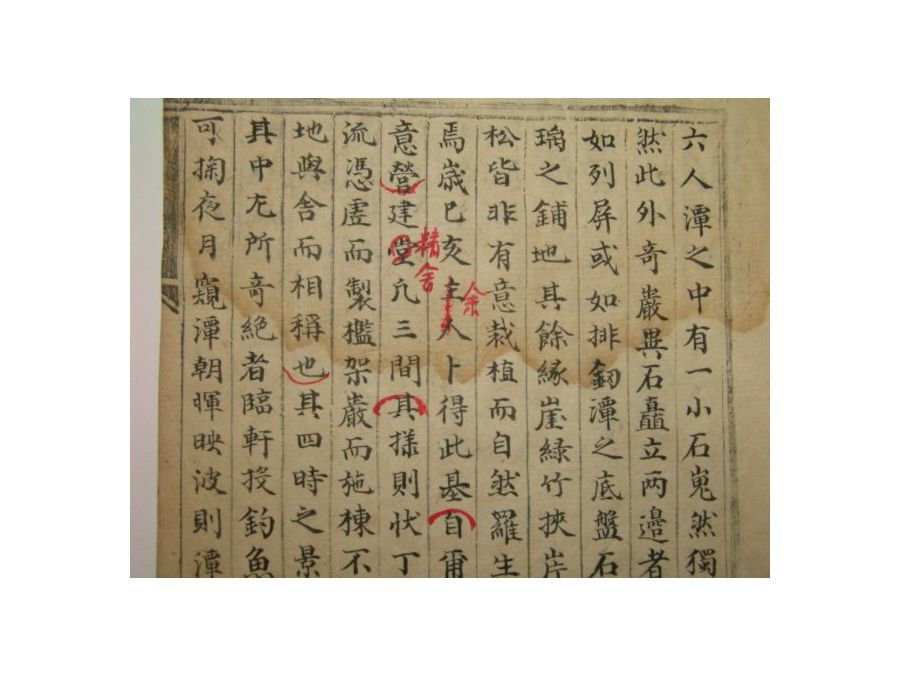 六人潭之中有一小石嵬然獨
然此外奇巖異石矗立两邉者
如列屏或如排釰潭之底盤石
瑀之鋪地其餘緣崖綠竹挾岸
松皆非有意栽植而自然羅生
焉歲已亥主人卜得此基自甭
余
意營建堂凢三間其㨾則状丁
精舍
流憑虗而製檻架巖而施棟不
地與舍而相稱也其四時之景
其中尤所奇絶者臨軒投釣魚
可掬夜月窺潭朝暉映波則潭